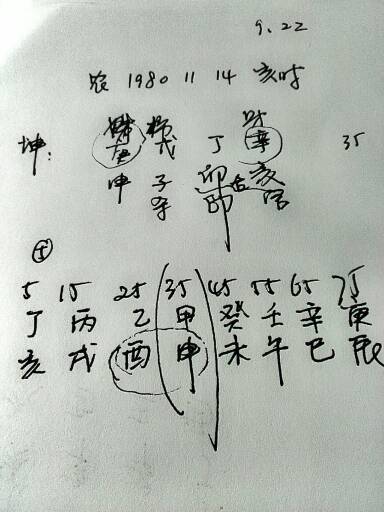 9.22
农 1980 11 14 亥时
财
坤: 庚 戊 丁 辛 35
申 子 卯 合 亥
杀 印 官
5 15 25 35 45 55 65 75
丁 丙 乙 甲 癸 壬 辛 庚
亥 戌 酉 申 未 午 巳 辰